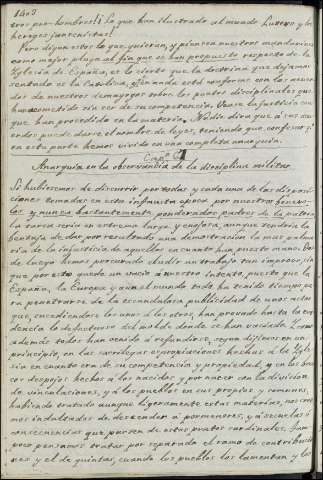 1405
tros pro-hombres! ¡Lo que han ilustrado al mundo Lutero y los
hereges jansenistas!
Pero digan estos lo que quieran, y piensen nuestros mandarines
como mejor plazca al fin que se han propuesto respecto de la
Iglesia de España, es lo cierto que la doctrina que dejamos
sentada es la Catolica, y cuando está conforme con los acuer
dos de nuestros demagogos sobre los puntos disciplinales que
han cometido sin ser de su competencia, Vease la justicia con
que han procedido en la materia. Nadie dirá que á sus acu
erdos puede darse el nombre de leyes, teniendo que confesar q.e
en esta parte hemos vivido en una completa anarquía.
Cap.o 67
Anarquia en la observancia de la disciplina militar.
Si hubiesemos de discurrir por todas y cada una de las disposi-
ciones tomadas en esta infausta epoca por nuestros
y nunca bastantemente ponderados padres de la patria,
la tarea seria en estremo larga y enojosa, aunque tendria la
ventaja de dar por resultado una demostracion la mas palma
ria de la injusticia de aquellos en cuanto han puesto mano. Des
de luego hemos procurado eludir un trabajo tan improbo, sin
que por esto quede un vacio á nuestro intento, puesto que la
España, la Europa y aun el mundo todo ha tenido tiempo pa
ra penetrarse de la escandalosa publicidad de unos actos
que, sucediendose los unos á los otros, han probado hasta la evi
dencia lo defectuoso del molde donde se han vaciado. Como
ademas todos han venido á refundirse, segun dijimos en un
principio, en las sacrilegas expropiaciones hechas á la Igle
sia en cuanto era de su competencia y propiedad, y en los atro
ces despojos hechos á los nacidos y por nacer con la division
de vinculaciones, y á los pueblos en sus propios y comunes,
habiendo tratado aunque ligeramente, estas materias, nos cree
mos indultados de descender á pormenores, y á secuelas ó
consecuencias que parten de estos puntos cardinales. Tam
poco pensamos tratar por separado el ramo de contribucio
nes y el de quintas, cuando los pueblos los lamentan y los